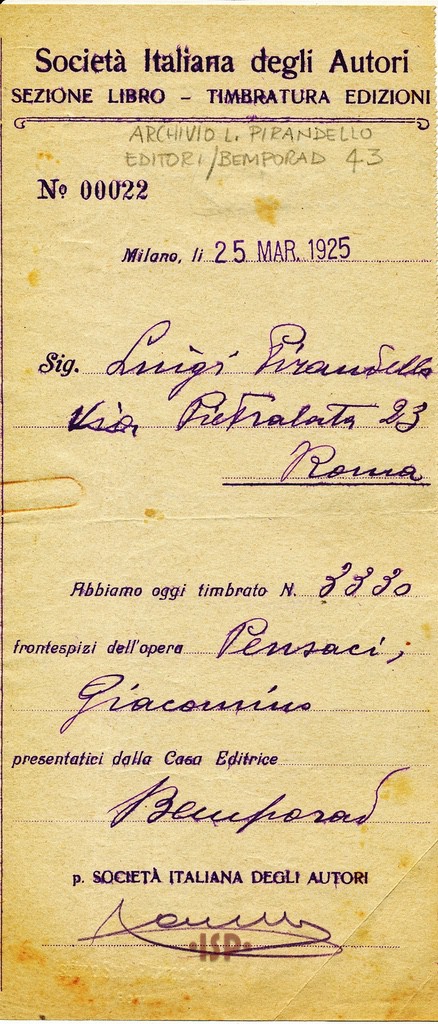 Società Italiana degli Autori
SEZIONE LIBRO - TIMBRATURA EDIZIONI
ARCHIVIO L. PIRANDELLO
EDITORI/BEMPORAD 43
Nº 00022
Milano, li 25 MAR. 1925
Sig. Luigi Pirandello
Via Pietralata 23
Roma
Abbiamo oggi timbrato N. 3330
frontespizi dell'opera Pensaci,
Giacomino
presentatici dalla Casa Editrice
Bemporad
p. SOCIETÀ ITALIANA DEGLI AUTORI
•ISP•